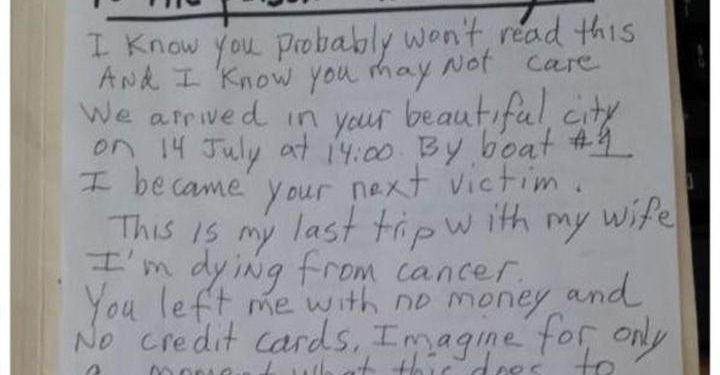 I Know you probably won't read this
And I Know you may Not care
We arrived in your beautiful city
on 14 July at 14:00. By boat #1
I became your next victim.
This is my last trip with my wife
I'm dying from cancer.
You left me with no money and
No credit cards, Imagine for only
a moment what this does to